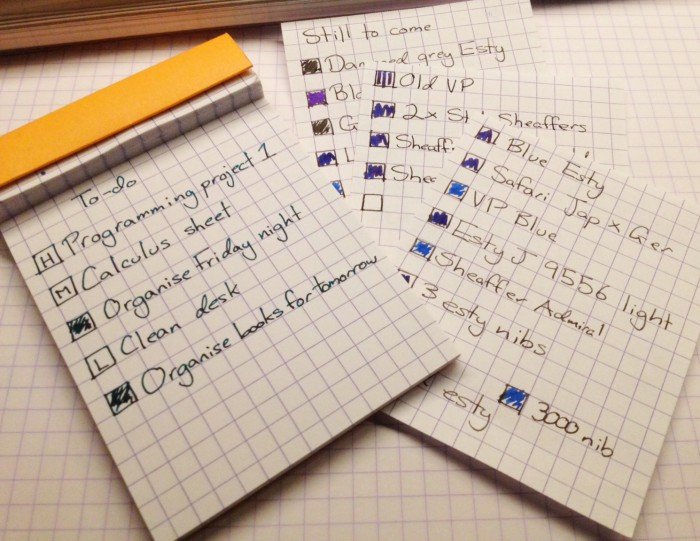 To-do
H Programming project 1
M Calculus sheet
Organise Friday night
L Clean desk
Organise books for tomorrow
Still to come
grey Esty
Old VP
2x St Sheaffers
Sheaff
Shea
Blue Esty
Safari Jap x Ger
VP Blue
Esty J 9556 light
Sheaffer Admiral
3 esty nibs
esty 3000 nib